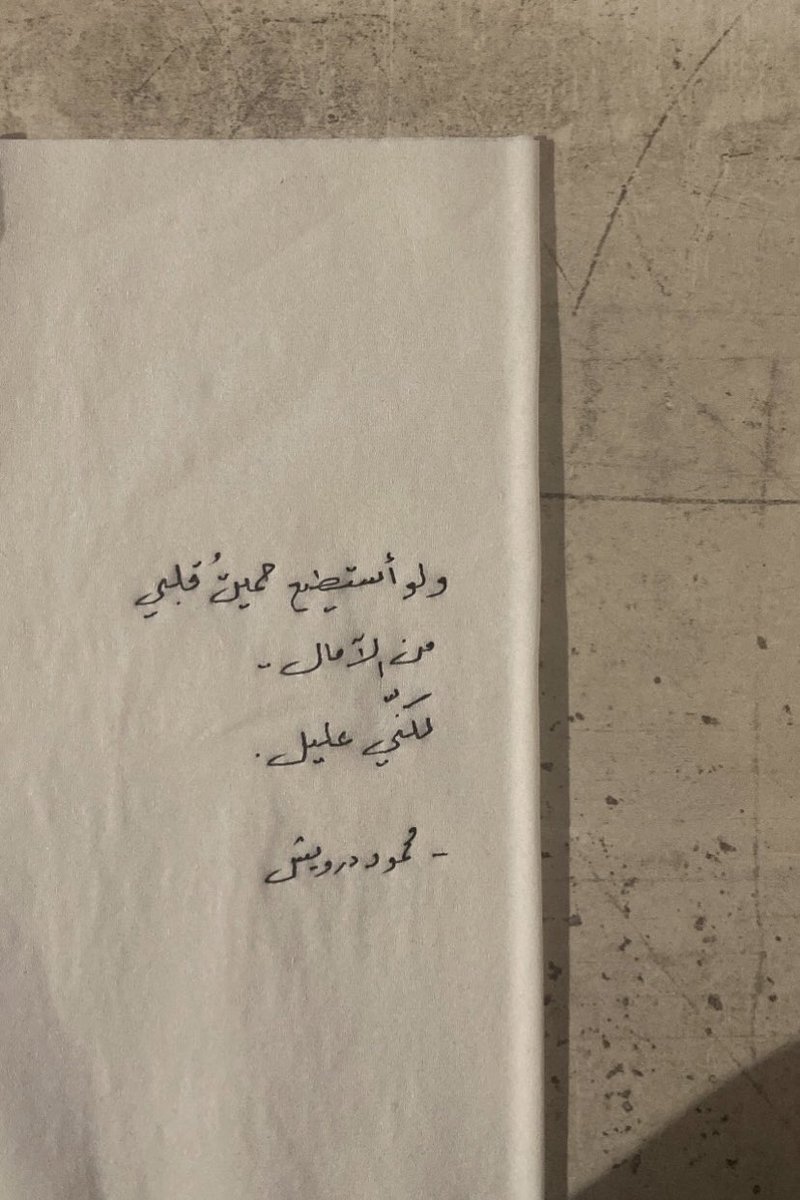 ولو أستطيع حميتُ قلبي
من الآمال -
لكنّي عليل.
- محمود درويش